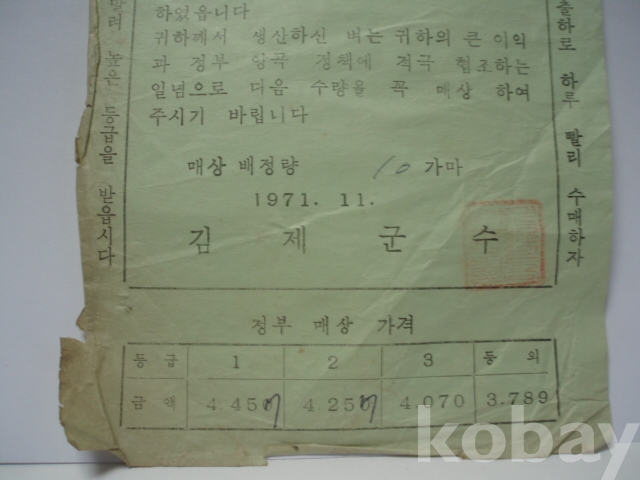 하였읍니다
귀하께서 생산하신 벼는 귀하의 큰 이익
과 정부 양곡 정책에 적극 협조하는
일념으로 다음 수량을 꼭 매상 하여
주시기 바랍니다
매상 배정량 10 가마
1971. 11.
김 제 군 수
말려 높은 등급을 받읍시다
출하로 하루 빨리 수매하자
정부 매상 가격
등 급 1 2 3 등 외
금 액 4.457 4.257 4.070 3.789
kobay